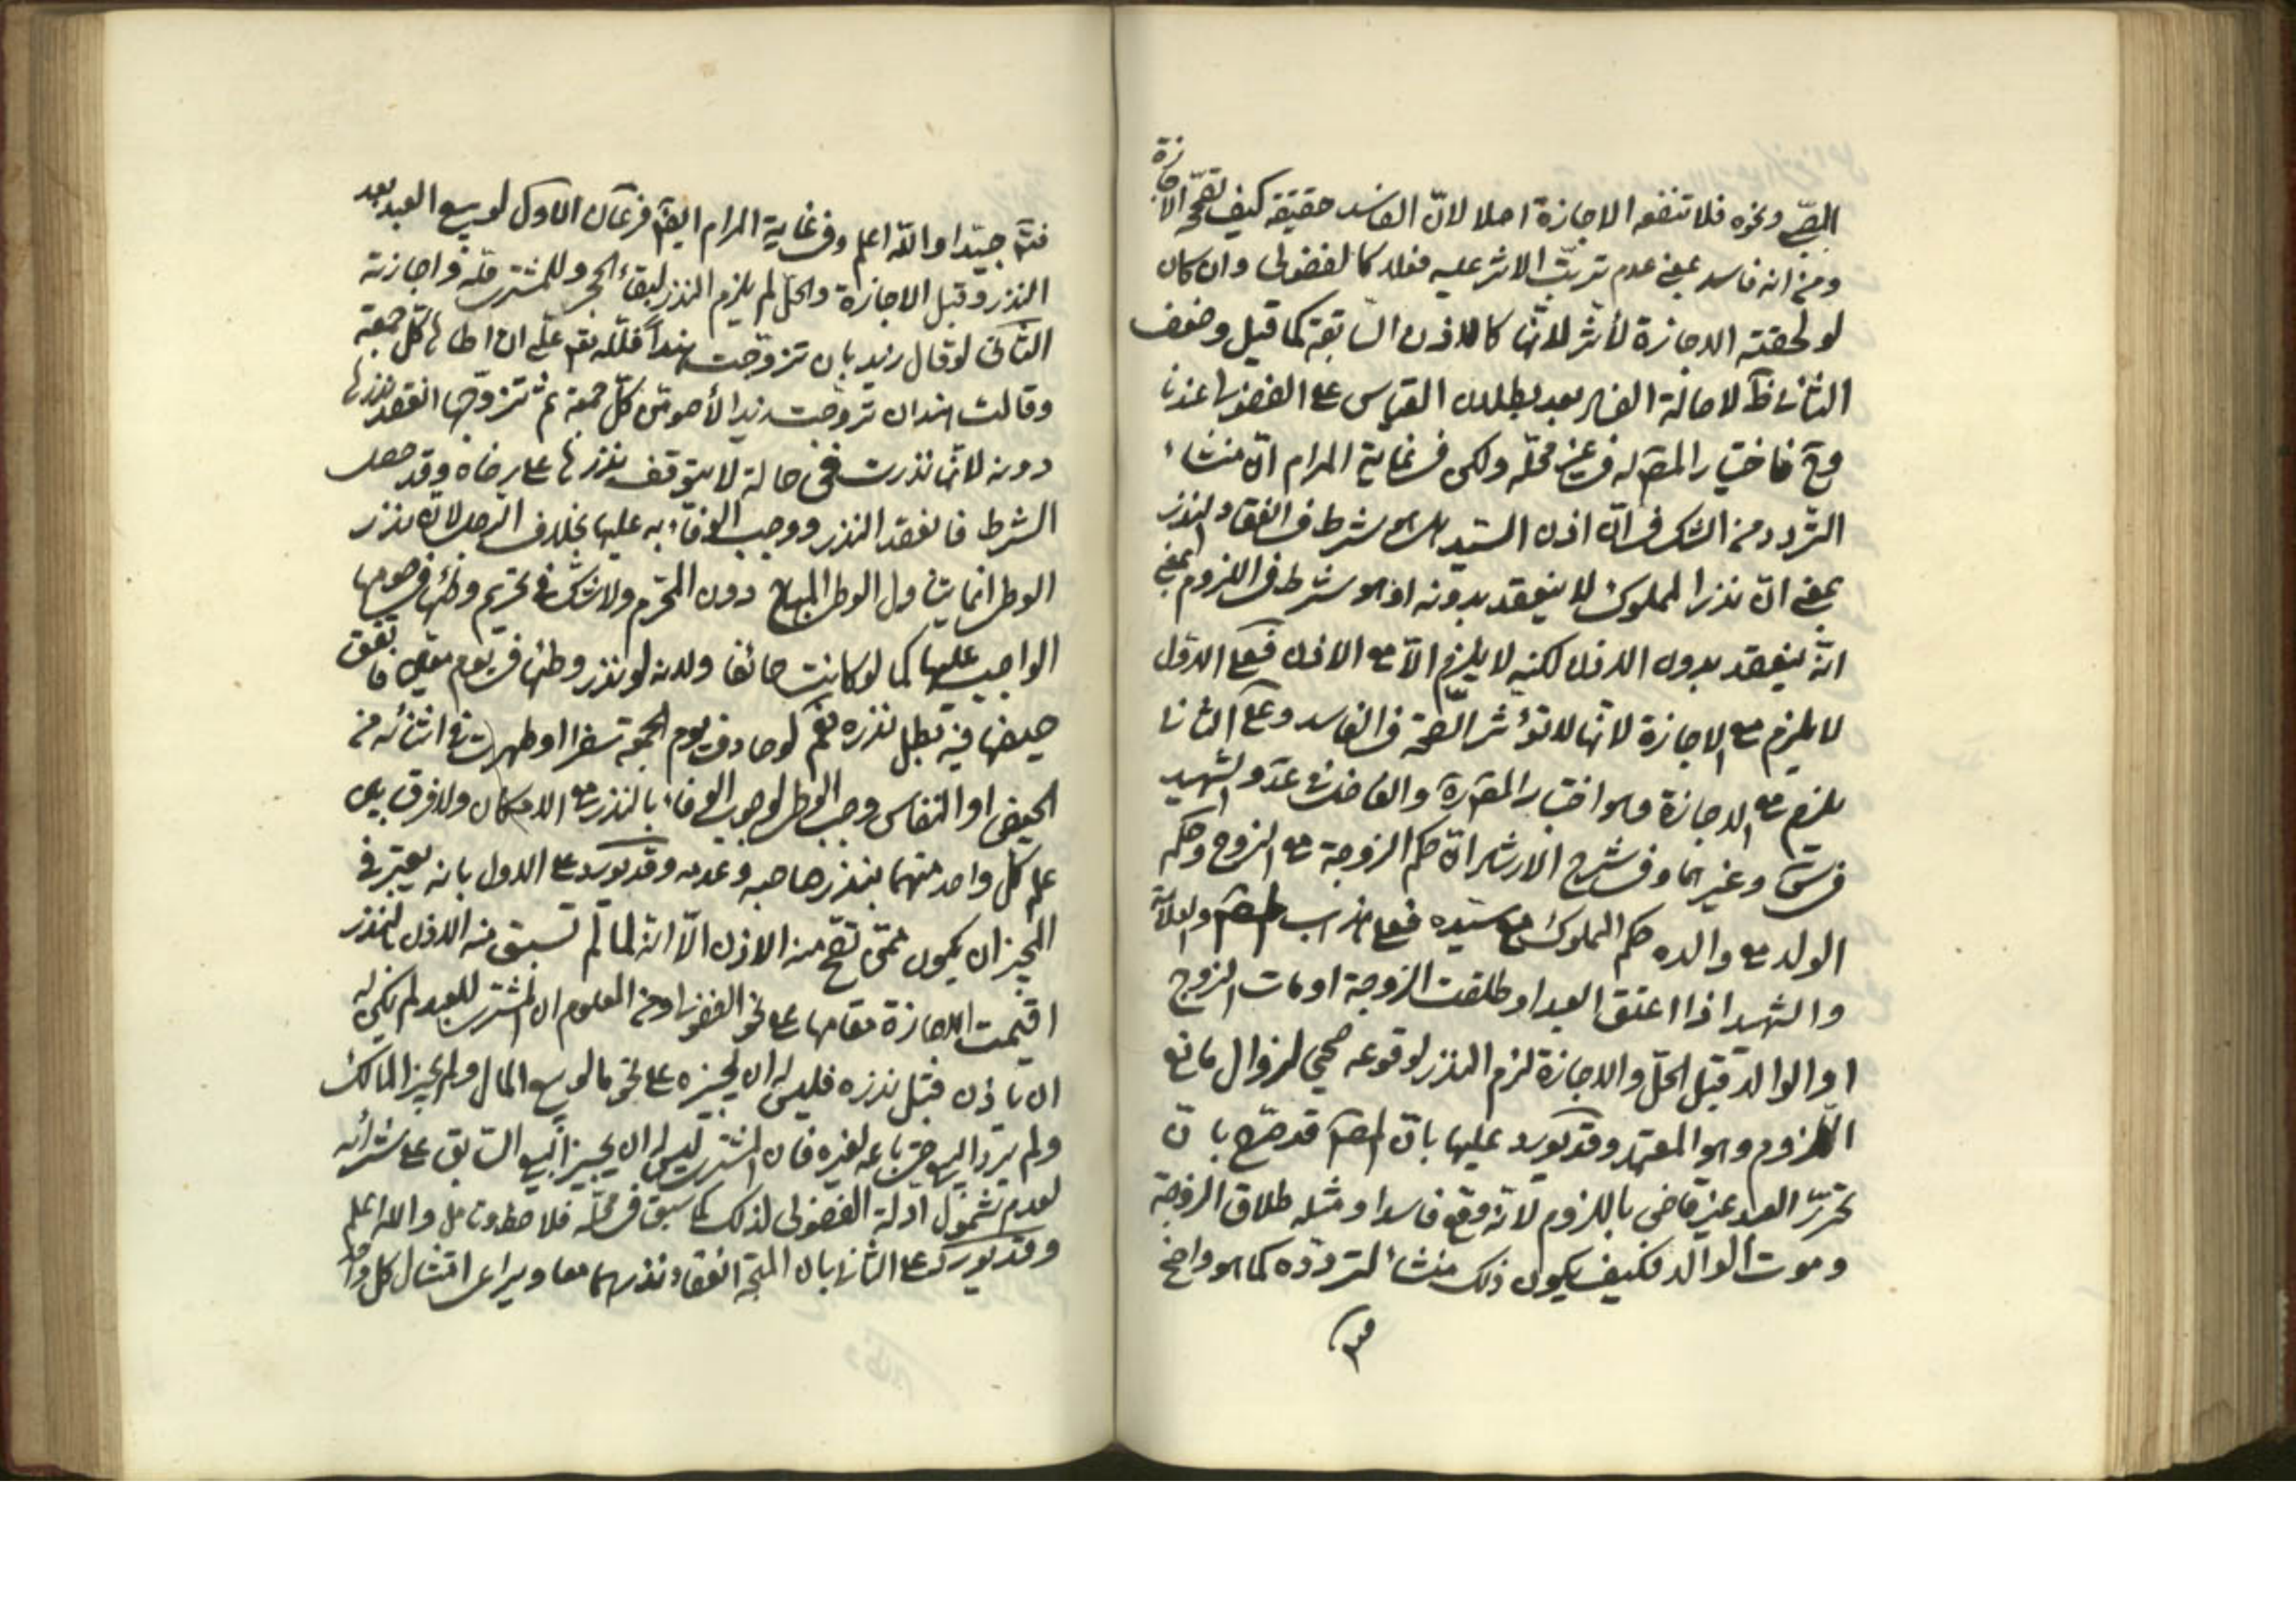 الصبي ونحوه فلا تنفعه الاجازة اصلا لانّ الفاسد حقيقة كيف تصحّحه الاجازة
ومن انه فاسد بمعنى عدم ترتّب الاثر عليه فعلا كالفضولى وان كان
لو لحقته الاجازة لأثّر لانها كالاذن السّابقة كما قيل وضعف
الثانى لاصالة الفساد بعد بطلان القياس على الفضولى عندنا
فاختيار المصّ له فى غير محلّه ولكن فى غاية المرام انّ منشاء
التّردد من الشك فى انّ اذن السّيد هل هو شرط فى انعقاد النذر
بمعنى انّ نذر المملوك لا ينعقد بدونه او هو شرط فى اللزوم بمعنى
انّه ينعقد بدون الاذن لكنه لا يلزم الاّ مع الاذن فعلى الاول
لا يلزم مع الاجازة لانها لا تؤثّر الصّحة فى الفاسد وعلى الثانى
يلزم مع الاجازة وهو اختيار المصّ والفاضل فى عد والشهيد
فى س وغيرهما وفى شرح الارشاد انّ حكم الزوجة مع الزوج وحكم
الولد مع والده حكم المملوك مع سيّده فعلى مذهب المصّ والعلامة
والشهيد اذا اعتق العبد او طلقت الزوجة او مات الزوج
او الوالد قبل الحلّ والاجازة لزم النذر لوقوعه صحيحا لزوال مانع
اللزوم وهو المعتمد وقد يورد عليها بانّ المصّ قد صرّح بانّ
تحرّر العبد غير قاضى باللزوم لانّه وقع فاسدا ومثله طلاق الزوجة
وموت الوالد فكيف يكون ذلك منشأ لتردّده كما هو واضح
فتـ جيّدا واللّه اعلم وفى غاية المرام ايضاً فرعان الاوّل لو بيع العبد بعد
النذر وقبل الاجازة والحلّ لم يلزم النذر لبقاء الحجر وللمشترى حلّه واجازته
الثّانى لو قال زيد بان تزوّجت هنداً فللّه علىّ ان اطاها كلّ جمعة
وقالت هند ان تزوّجت زيدا لأصومنّ كلّ جمعة ثم تزوّجها انعقد نذرها
دونه لانّها نذرت فى حالة لا يتوقف نذرها على رضاه وقد حصل
الشرط فانعقد النذر ووجب الوفاء به عليها بخلاف الرجل لانّه نذر
الوطى انما يتناول الوطى المباح دون المحّرم ولا شكّ فى تحريم وطئها فى صومها
الواجب عليها كما لو كانت حائضا ولانه لو نذر وطئها فى يوم معيّن فاتفق
حيضها فيه بطل نذره نعم لو صادف يوم الجمعة سفرا او طهرت فى اثنائه من
الحيض او النفاس وجب الوطى لوجوب الوفاء بالنذر مع الامكان ولا فرق بين
علم كلّ واحد منهما بنذر صاحبه وعدمه وقد يورد على الاول بانه يعتبر فى
المجيز ان يكون ممّن تصّح منه الاذن الاّ انّه لما لم تسبق منه الاذن للنذر
اقيمت الاجازة مقامها على نحو الفضولى ومن المعلوم ان المشترى للعبد لم يكن له
ان ياذن قبل نذره فليس له ان يجيزه على نحو ما لو بيع المال ولم يجز المالك
ولم يردّ البيع حتى باعه لغيره فان المشترى ليس له ان يجيز البيع السّابق على شرائه
لعدم شمول ادلة الفضولى لذلك كما سبق فى محلّه فلاحظ وتامل والله اعلم
وقد يورد على الثانى بان المتجه انعقاد نذرهما معا ويراعى امتثال كل واحد